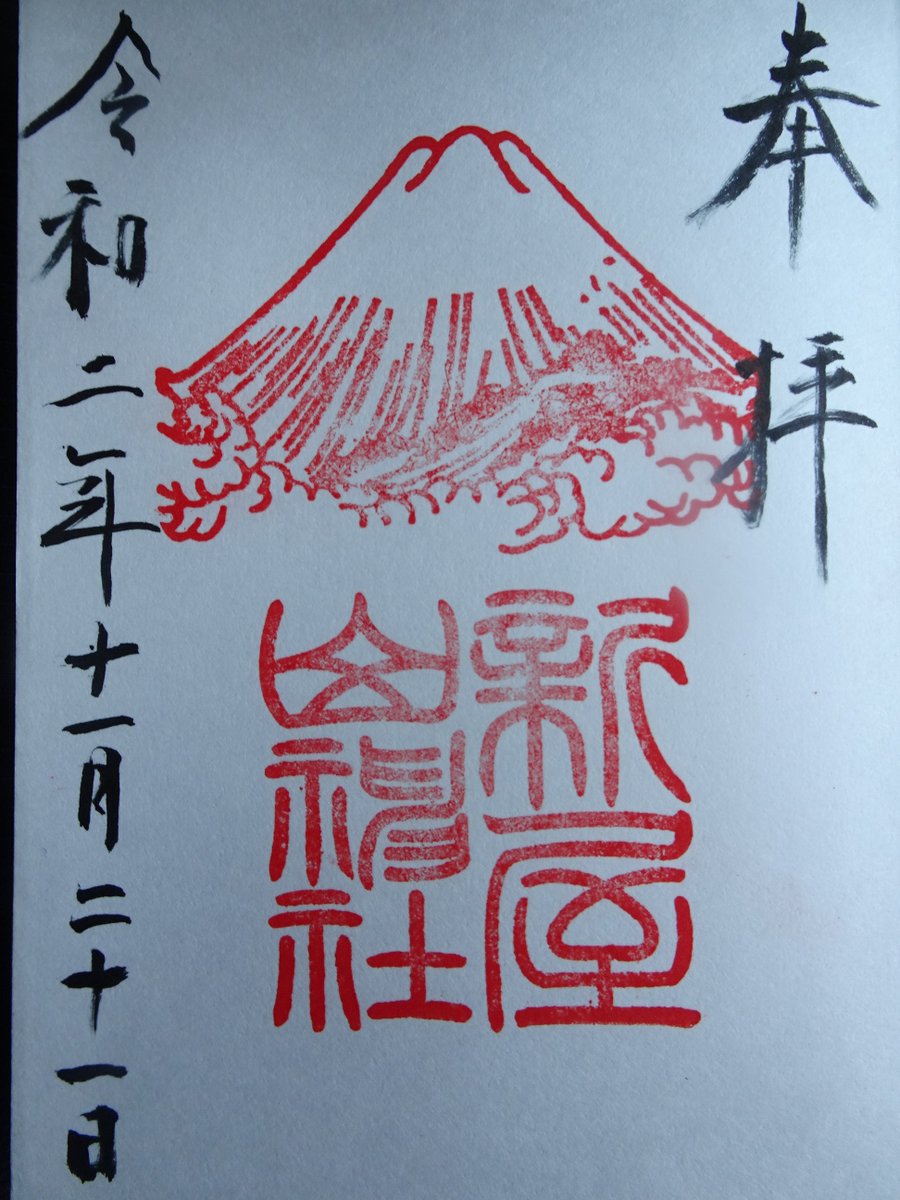 奉拝
新屋
山神社
令和二年十一月二十一日